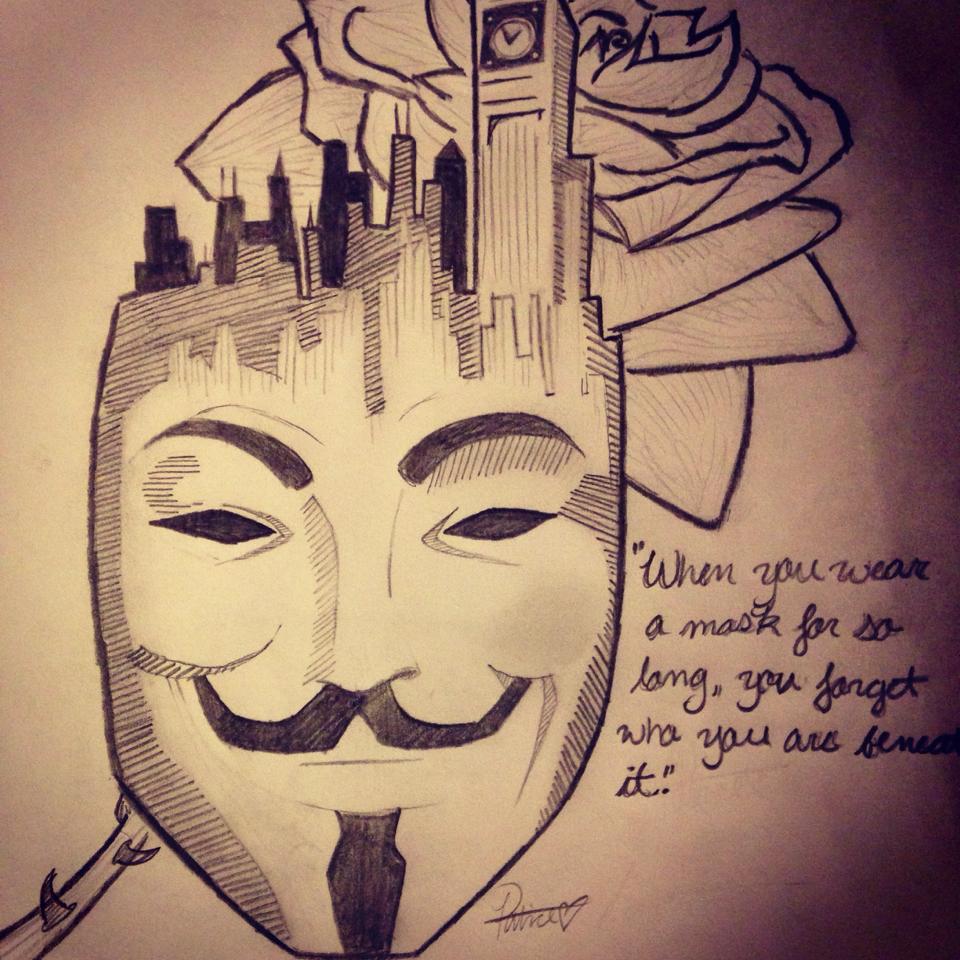 "When you wear
a mask for so
long,, you forget
who you are benea
it."